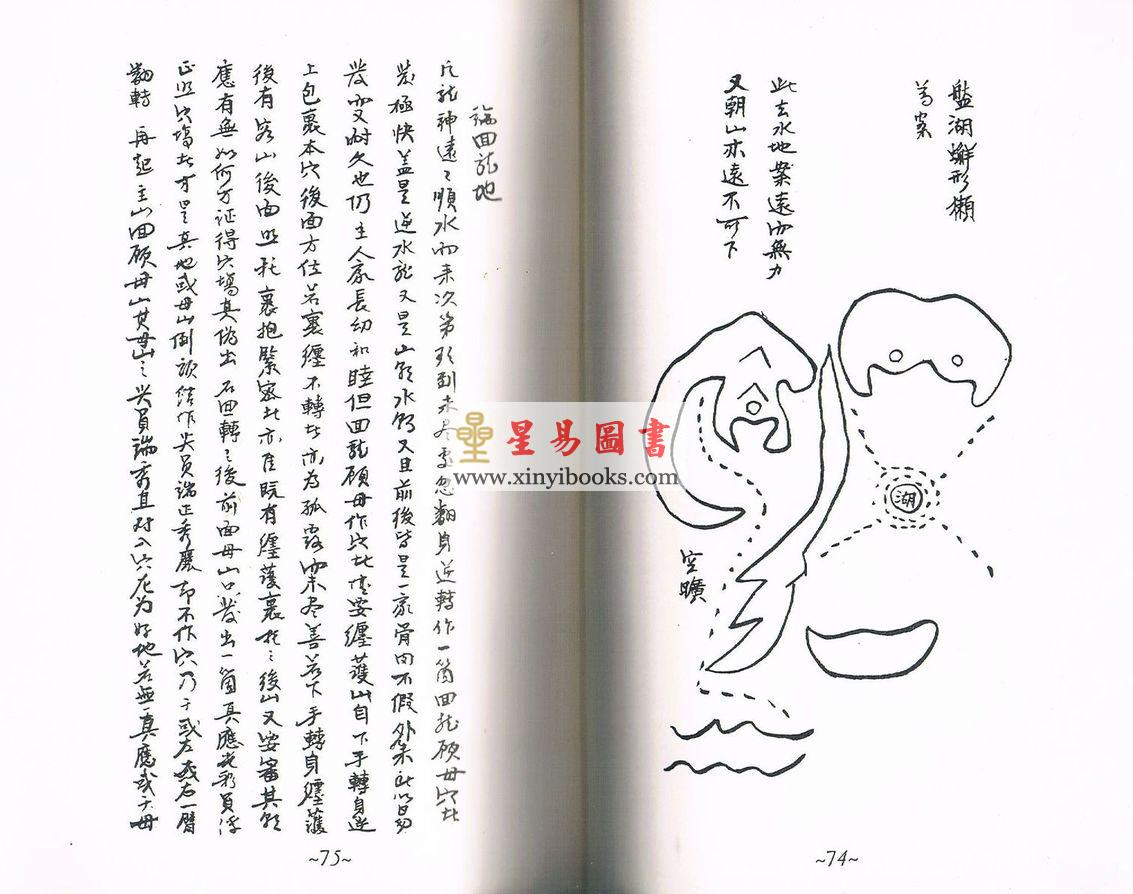 盤湖蠏形獺
為案
此去水地案遠而無力
又朝山亦遠不可下
湖
空曠
~74~
論回龍地
凡龍神遠々順水而来次第形到未尽處忽翻身逆轉作一箇回龍顧母穴此
發極快蓋是逆水龍又是山朝水朝又且前後皆是一家骨肉不假外案所以易
發而又耐久也仍主人家長幼和睦但回龍顧母作穴者要纏護山自下手轉身逆
上包裹本穴後面方位若裹纏不轉者亦為孤露而未尽善若下手轉身纏護
後有客山後面照托裹抱緊密者亦佳既有纏護裹托之後山又要審其朝
應有無如何方証得穴塲真偽出若回轉之後前面母山口發出一箇真應光彩員浮
正照穴塲者才是真地或母山倒頭結作尖員端正秀麗却不作穴乃于或左或右一臂
翻轉再起主山回顧母山其母山之尖員端秀且对入穴尤为好地若無真應或于母
~75~
星易圖書
www.xinyibooks.com